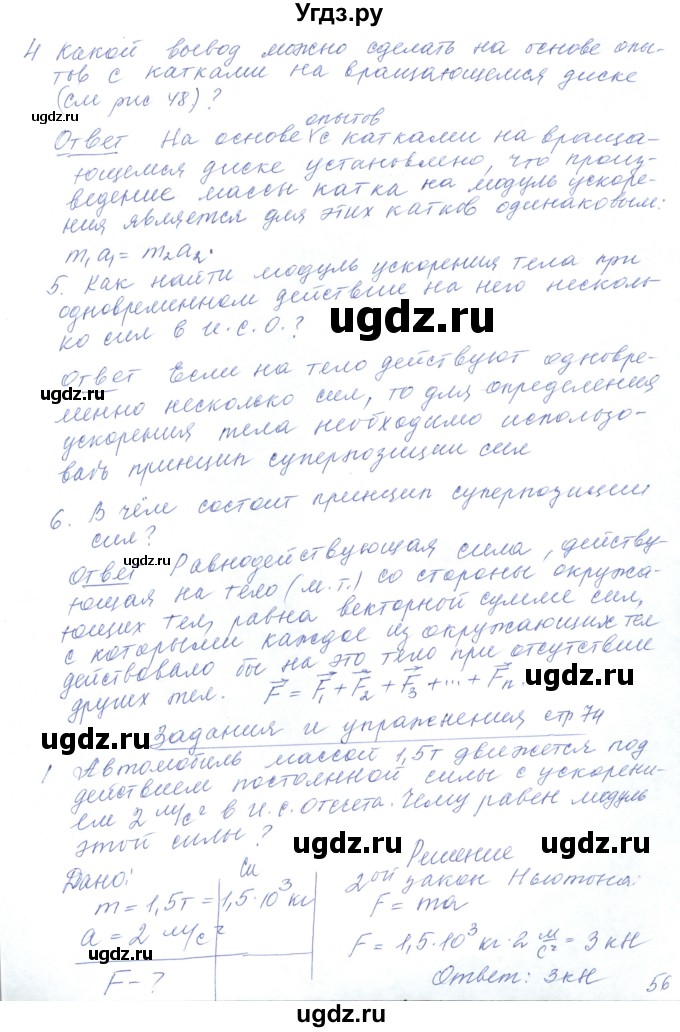 Угдз.ру
4 Какой вывод можно сделать на основе опы-
тов с катками на вращающемся диске
(см рис 48)?
опытов
Ответ На основе с катками на враща-
ющемся диске установлено, что произ-
ведение массы катка на модуль ускоре-
ния является для этих катков одинаковым:
m₁a₁ = m₂a₂.
5. Как найти модуль ускорения тела при
одновременном действие на него несколь-
ко сил в И.С.О.?
Ответ Если на тело действуют одновре-
менно несколько сил, то для определения
ускорения тела необходимо использо-
вать принцип суперпозиции сил
6. В чём состоит принцип суперпозиции
сил?
Ответ Равнодействующая сила, действу-
ющая на тело (м.т.) со стороны окружа-
ющих тел, равна векторной сумме сил,
с которыми каждое из окружающих тел
действовало бы на это тело при отсутствие
других тел. F⃗ = F⃗₁ + F⃗₂ + F⃗₃ + ... + F⃗ₙ.
Задания и упражнения стр 74
1 Автомобиль массой 1,5т движется под
действием постоянной силы с ускорени-
ем 2 м/с² в И.С. отсчета. Чему равен модуль
этой силы?
Дано: Си Решение
m = 1,5т = 1,5·10³ кг 2ой закон Ньютона:
a = 2 м/с² F = ma
F = 1,5·10³ кг·2 м/с² = 3 кН
F - ? Ответ: 3кН
56
ugdz.ru
ugdz.ru
ugdz.ru
ugdz.ru
ugdz.ru
ugdz.ru
ugdz.ru
ugdz.ru
ugdz.ru
ugdz.ru
ugdz.ru
ugdz.ru
ugdz.ru